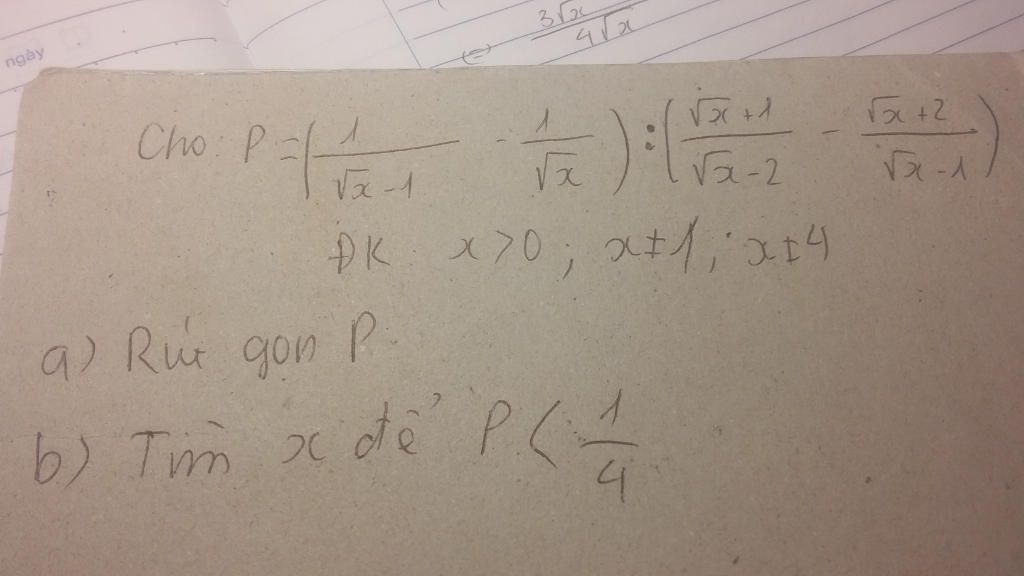 ngày
(=) 3√x / 4√x
Cho: P = (1/(√x - 1) - 1/√x) : ((√x + 1)/(√x - 2) - (√x + 2)/(√x - 1))
ĐK x > 0 ; x ≠ 1 ; x ≠ 4
a) Rút gọn P
b) Tìm x để P < 1/4